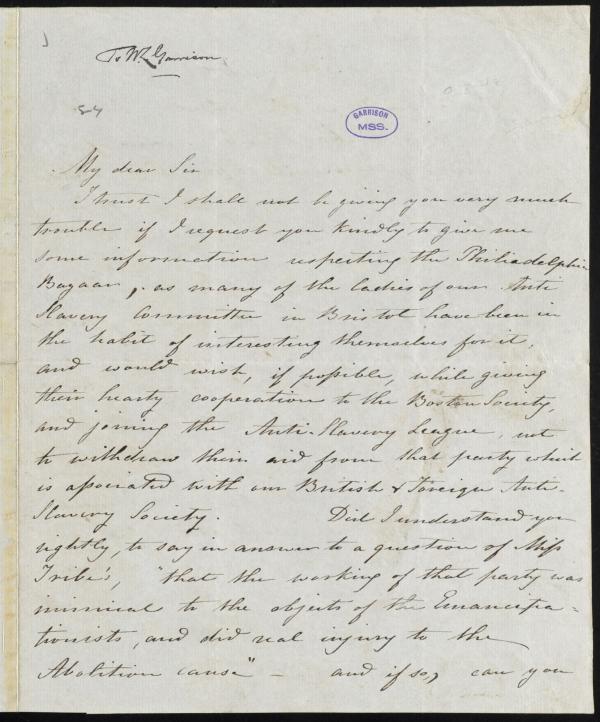 To W L Garrison
54
GARRISON
MSS.
My dear Sir
I trust I shall not be giving you very much
trouble if I request you kindly to give me
some information respecting the Philiadelphia
Bazaar, as many of the ladies of our Anti
Slavery Committee in Bristol have been in
the habit of interesting themselves for it,
and would wish, if possible, while giving
their hearty cooperation to the Boston Society,
and joining the Anti-Slavery League, not
to withdraw their aid from that party which
is associated with our British & Foreign Anti-
Slavery Society. Did I understand you
rightly, to say in answer to a question of Miss
Tribe's, "that the working of that party was
inimical to the objects of the Emancipa=
tionists, and did real injury to the
Abolition cause" - and if so, can you